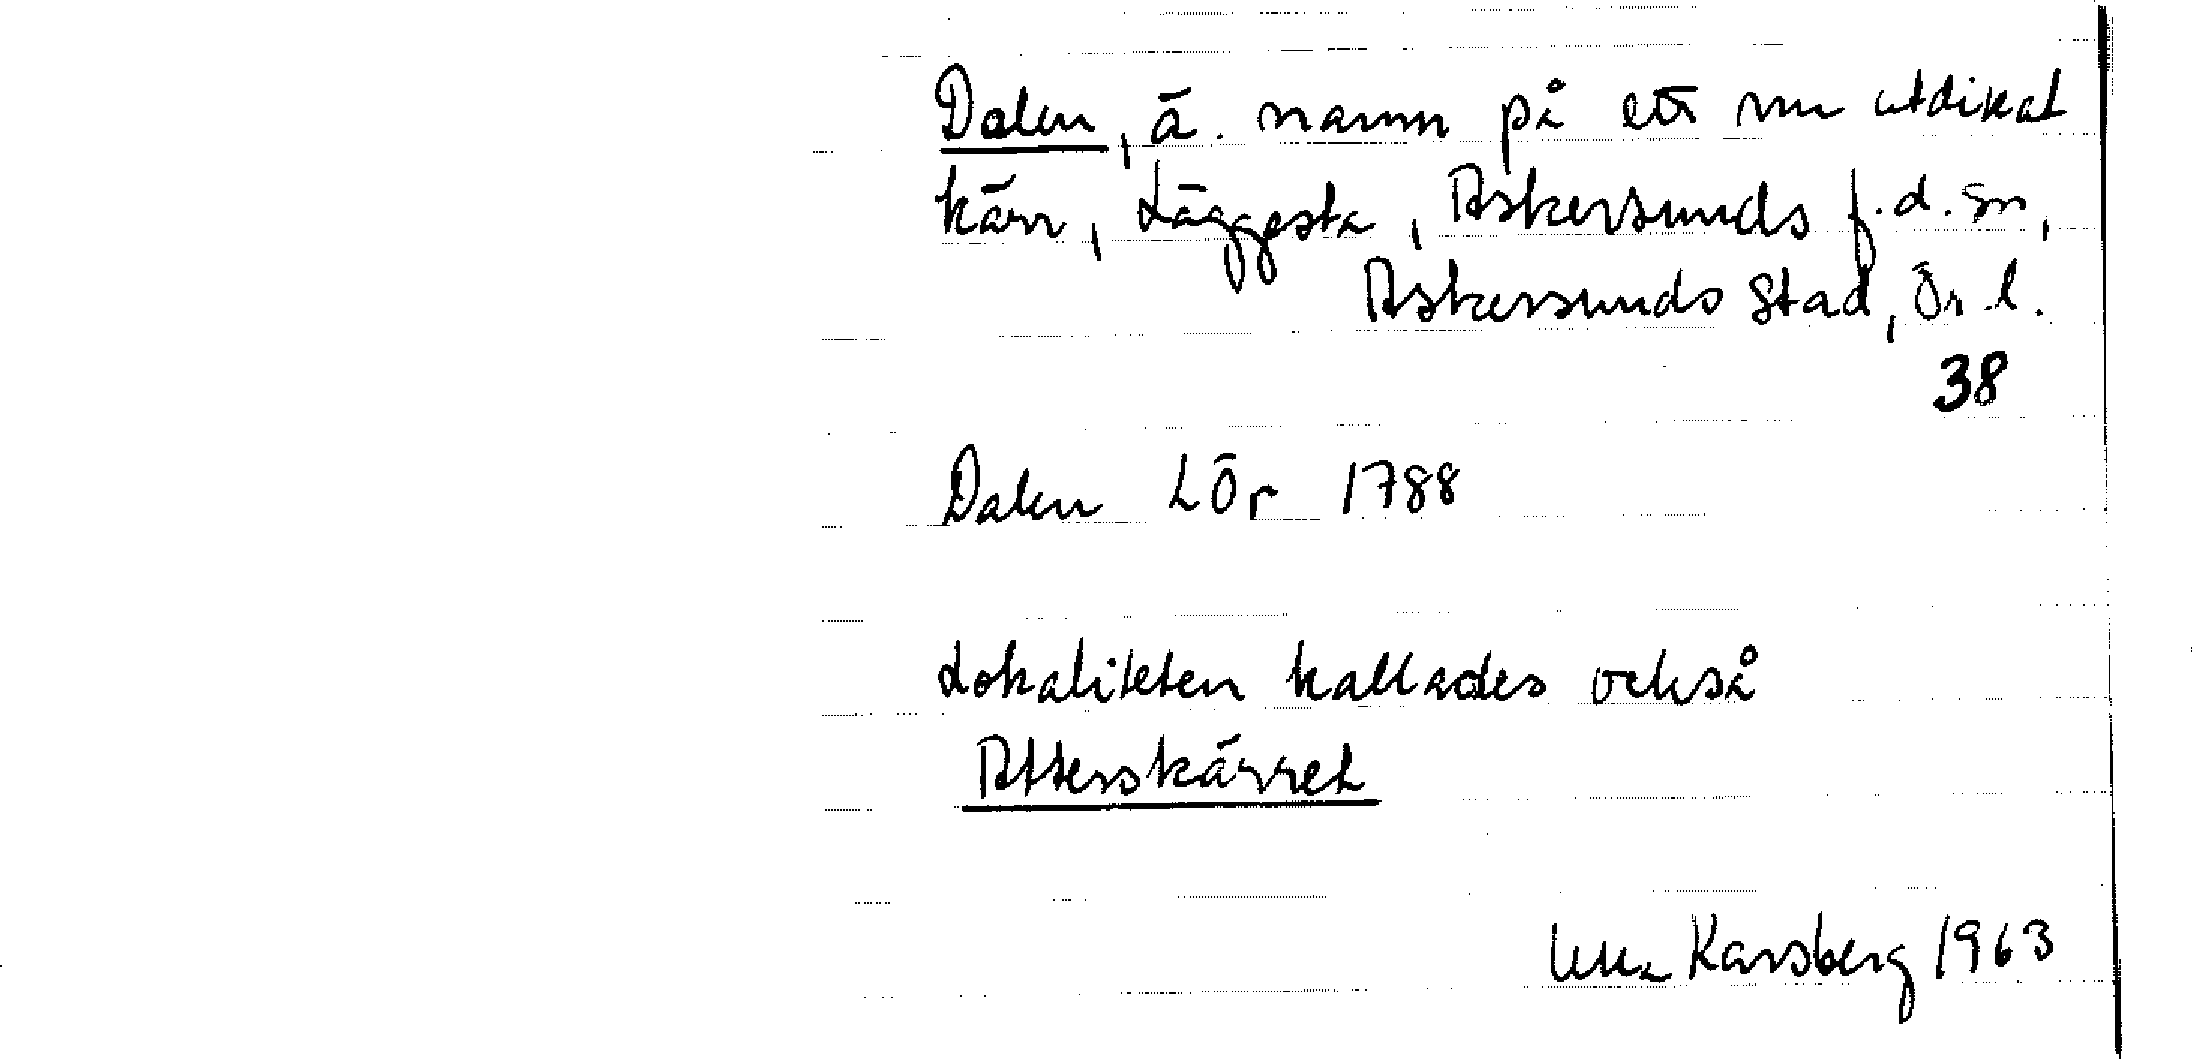 Dalen, ä. namn på ett nu utdikat
kärr, Läggesta, Askersunds f.d. sn,
Askersunds stad, Ör l.
38
Dalen LÖr 1788
Lokaliteten kallades också
Atterskärret
Ulla Karsberg 1963